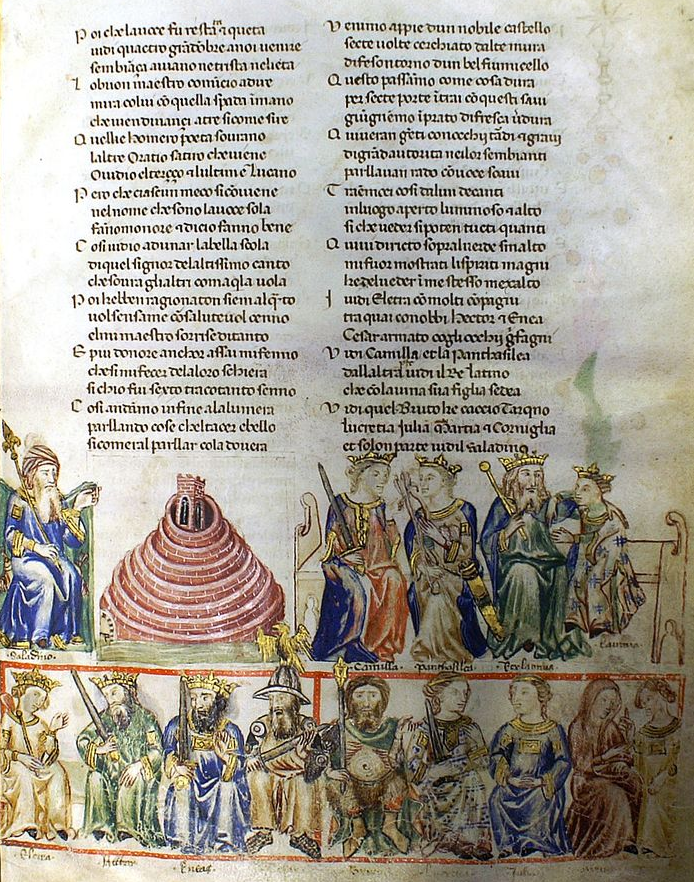 Poi che lavoce fu restata 7 queta
uidi quactro grandombre anoi uenire
sembiança aviano netrista nelieta
Lobuon maestro comincio adire
mira colui co quella spada i mano
che uien dinançi atre sicome sire
Quelli e homero poeta sourano
laltre Oratio satiro che uiene
Ouidio elterço 7 lultim e Lucano
Pero che ciascun meco siconuiene
nelnome che sono lauoce sola
fanomonore 7 dicio fanno bene
Cosi uidio adunar labella scola
di quel signor delaltissimo canto
che soura glialtri comaqla uola
Poi hebber ragionaton siem alqto
uolsensame co saluteuol cenno
elmi maestro sorrise ditanto
E piu donore anchor assai mi fenno
chesi mifecer delaloro schiera
si chio fui sexto tra cotanto senno
Cosi andamo infine alalumera
parllando cose cheltacer e bello
sicomeral parllar cola douera
Venimo appie dun nobile castello
secte uolte cerchiato dalte mura
difeso ntorno dun bel fiumicello
Questo passamo come cosa dura
per secte porte itrai co questi saui
giugnemo i prato di fresca uidura
Quiueran geti con occhi tadi 7 graui
di grand autorita neilor sembianti
parllauan rado co uoce soaui
Traemoci cosi dalun decanti
inluogo aperto luminoso 7 alto
si che ueder sipoten tucti quanti
Quiui diricto sopral uerde smalto
mi fuor mostrati lispiriti magni
che del ueder i me stesso mexalto
I uidi Eletra co molti copagni
tra quai conobbi Hector 7 Enea
Cesar armato cogli occhi grifagni
Vidi Camilla et la Panthasilea
dallaltra uidi il Re latino
che co lauina sua figlia sedea
Vidi quel Bruto che caccio Tarqno
lucretia Julia Martia 7 Corniglia
et solon parte uidil Saladino
Saladino
Camilla panthasilea Rex latinus Lauina
Eletra Hector Eneas